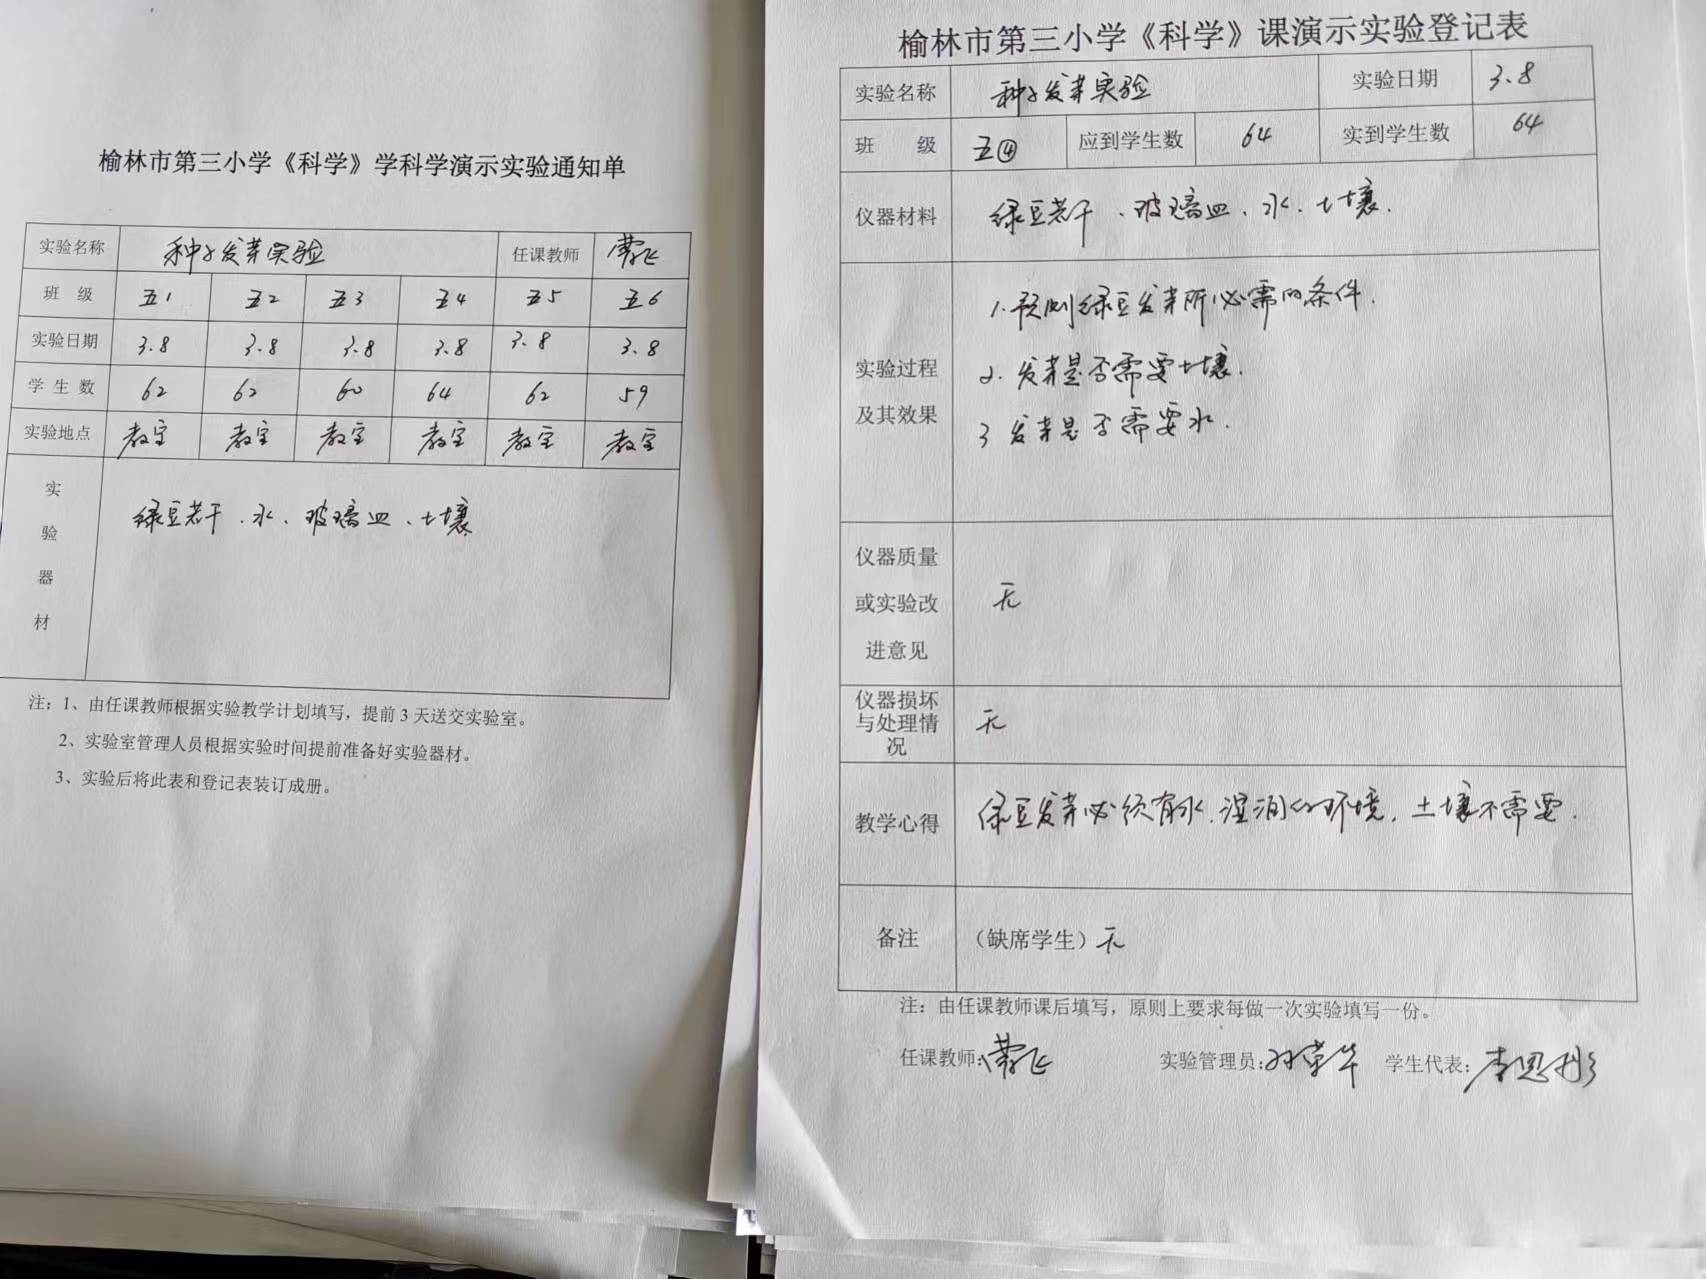 榆林市第三小学《科学》学科学演示实验通知单
实验名称 种子发芽实验 任课教师
班 级 五1 五2 五3 五4 五5 五6
实验日期 3.8 3.8 3.8 3.8 3.8 3.8
学 生 数 62 62 60 64 62 59
实验地点 教室 教室 教室 教室 教室 教室
实验器材 绿豆若干、水、玻璃皿、土壤
注：1、由任课教师根据实验教学计划填写，提前3天送交实验室。
2、实验室管理人员根据实验时间提前准备好实验器材。
3、实验后将此表和登记表装订成册。
榆林市第三小学《科学》课演示实验登记表
实验名称 种子发芽实验 实验日期 3.8
班 级 五④ 应到学生数 64 实到学生数 64
仪器材料 绿豆若干、玻璃皿、水、土壤.
实验过程及其效果
1.预测绿豆发芽所必需的条件.
2.发芽是否需要土壤.
3 发芽是否需要水.
仪器质量或实验改进意见 无
仪器损坏与处理情况 无
教学心得 绿豆发芽必须有水.湿润的环境,土壤不需要.
备注 （缺席学生）无
注：由任课教师课后填写，原则上要求每做一次实验填写一份。
任课教师: 实验管理员: 学生代表: